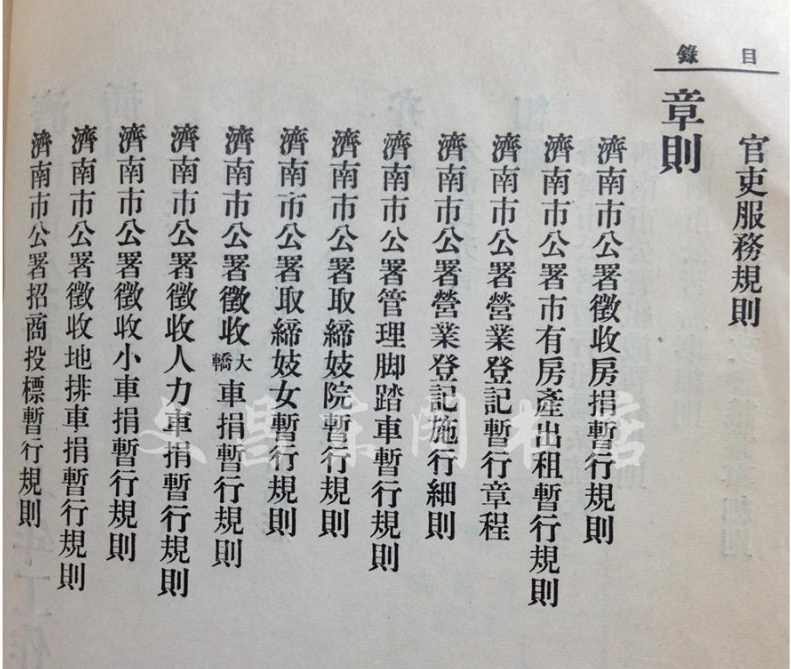 目錄
官吏服務規則
章則
濟南市公署徵收房捐暫行規則
濟南市公署市有房產出租暫行規則
濟南市公署營業登記暫行章程
濟南市公署營業登記施行細則
濟南市公署管理脚踏車暫行規則
濟南市公署取締妓院暫行規則
濟南市公署取締妓女暫行規則
濟南市公署徵收大轎車捐暫行規則
濟南市公署徵收人力車捐暫行規則
濟南市公署徵收小車捐暫行規則
濟南市公署徵收地排車捐暫行規則
濟南市公署招商投標暫行規則